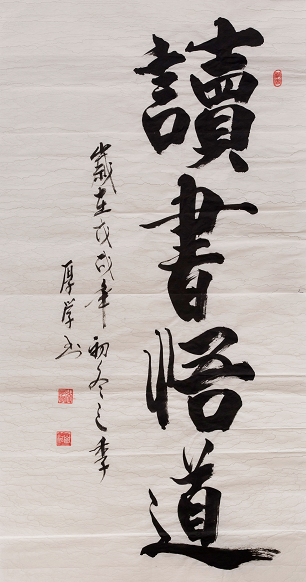 讀書悟道
歲在戊戌年初冬之季
厚学书